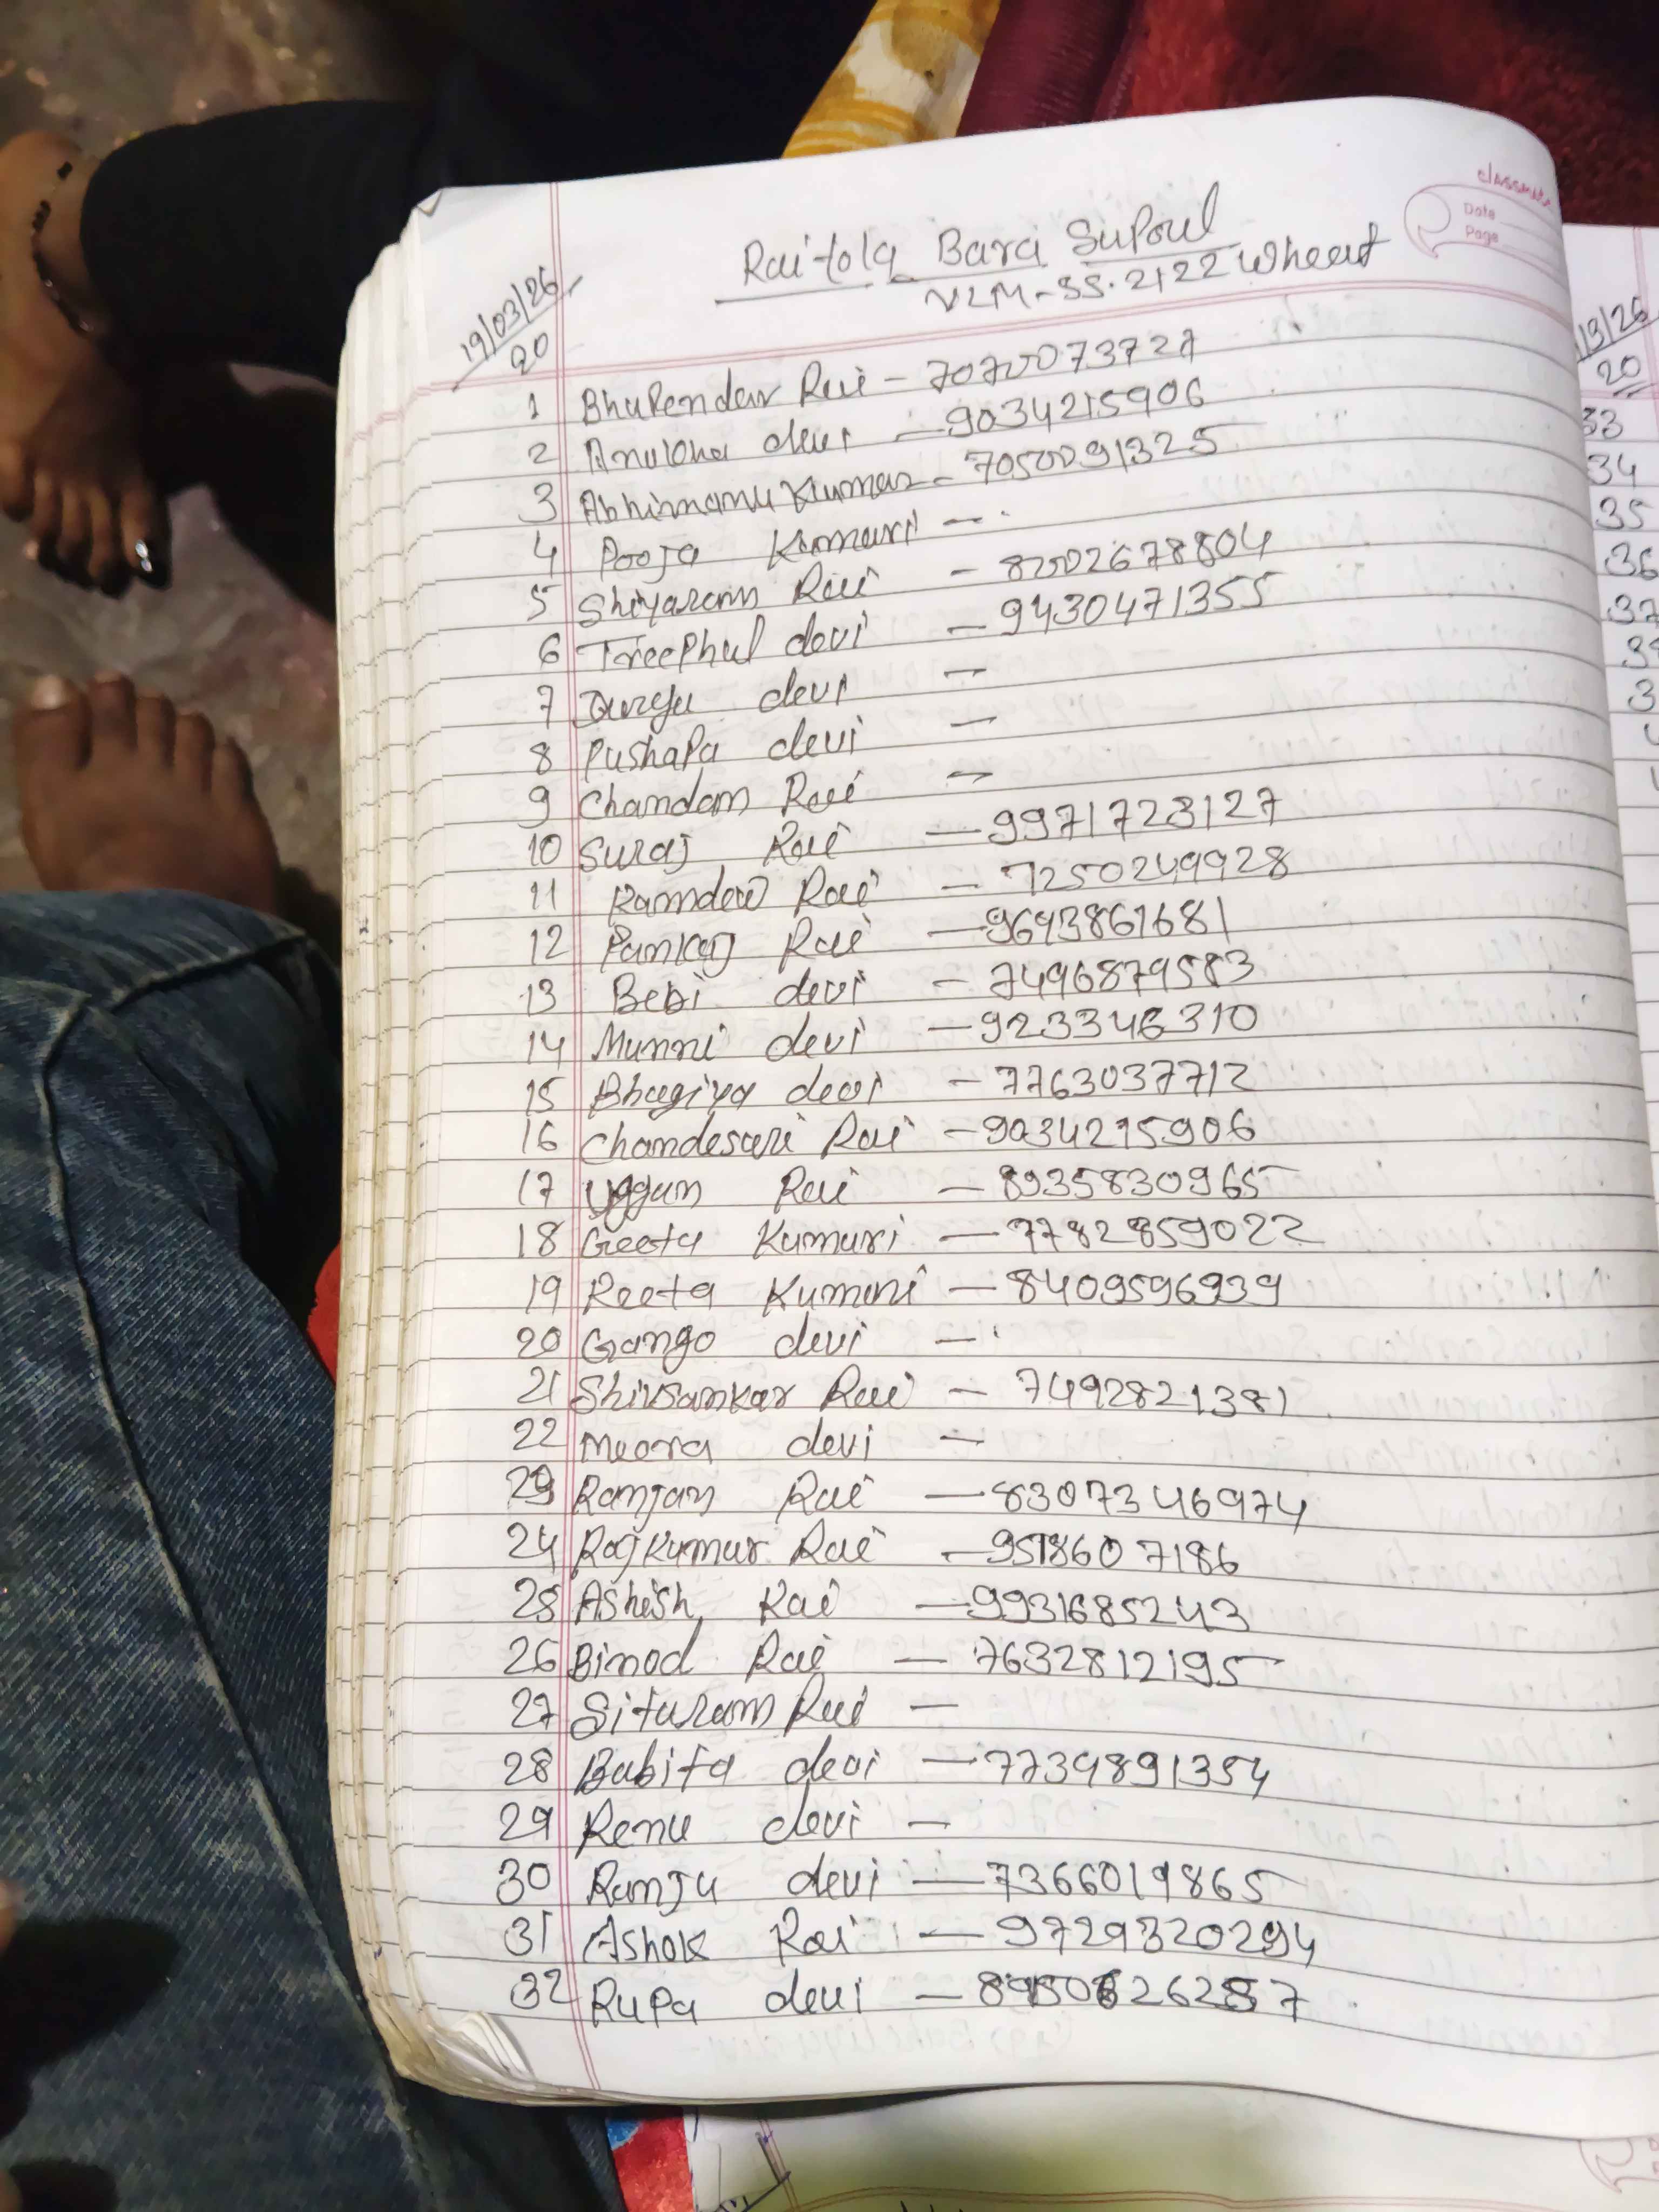 classmate
Date
Page
Raitola Bara Supoul
VLM-SS.2122 Wheat
19/03/26
20
1 Bhupendar Rai - 7070073727
2 devi - 9034215906
3 Abhimanu Kumar - 7050091325
4 Pooja Kumari -
5 Shiyaram Rai - 82002678804
6 TreePhul devi - 9430471355
7 Durga devi -
8 PushaPa devi -
9 Chandan Rai -
10 Suraj Rai - 9971723127
11 Ramdew Rai - 7250249928
12 Pankaj Rai - 9693861681
13 Bebi devi - 7496879583
14 Munni devi - 923346310
15 Bhagiya devi - 7763037712
16 Chandesari Rai - 9034215906
17 Uggan Rai - 8935830965
18 Geeta Kumari - 7782859022
19 Reeta Kumari - 8409596939
20 Gango devi -
21 Shivsankar Rai - 7492821381
22 Meera devi -
23 Ranjan Rai - 8307346974
24 Rajkumar Rai - 9518607186
25 Ashish Rai - 9931685243
26 Binod Rai - 7632812195
27 Sitaram Rai -
28 Babita devi - 7739891354
29 Renu devi -
30 Ranju devi - 7366019865
31 Ashok Rai - 9729320294
32 Rupa devi -
20
33
34
35
36
37